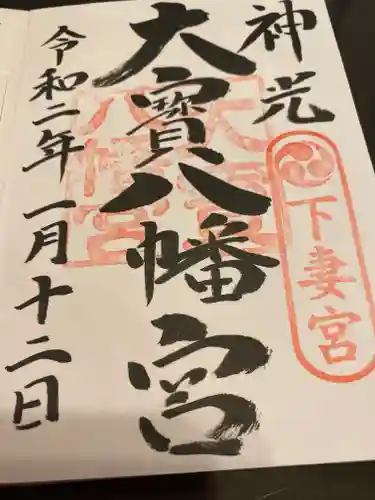 神光
下妻宮
大寶八幡宮
大寶八幡宮
令和二年一月十二日